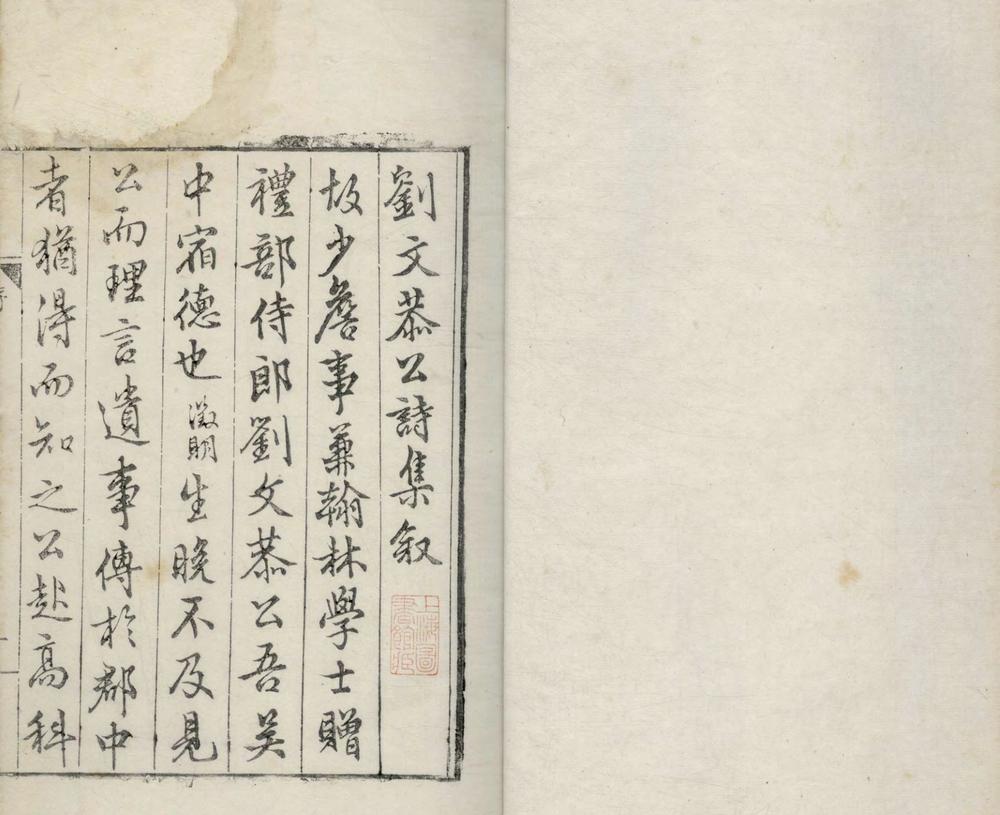 劉文恭公詩集叙
上海圖書館藏
故少詹事兼翰林學士贈
禮部侍郎劉文恭公吾吳
中宿德也徵明生晚不及見
公而理言遺事傳於郡中
者猶得而知之公起高科